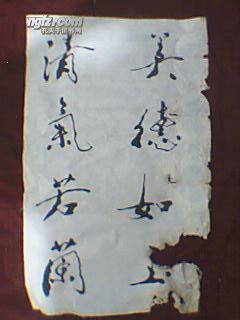 孔夫子旧书网
美德如
清氣若蘭